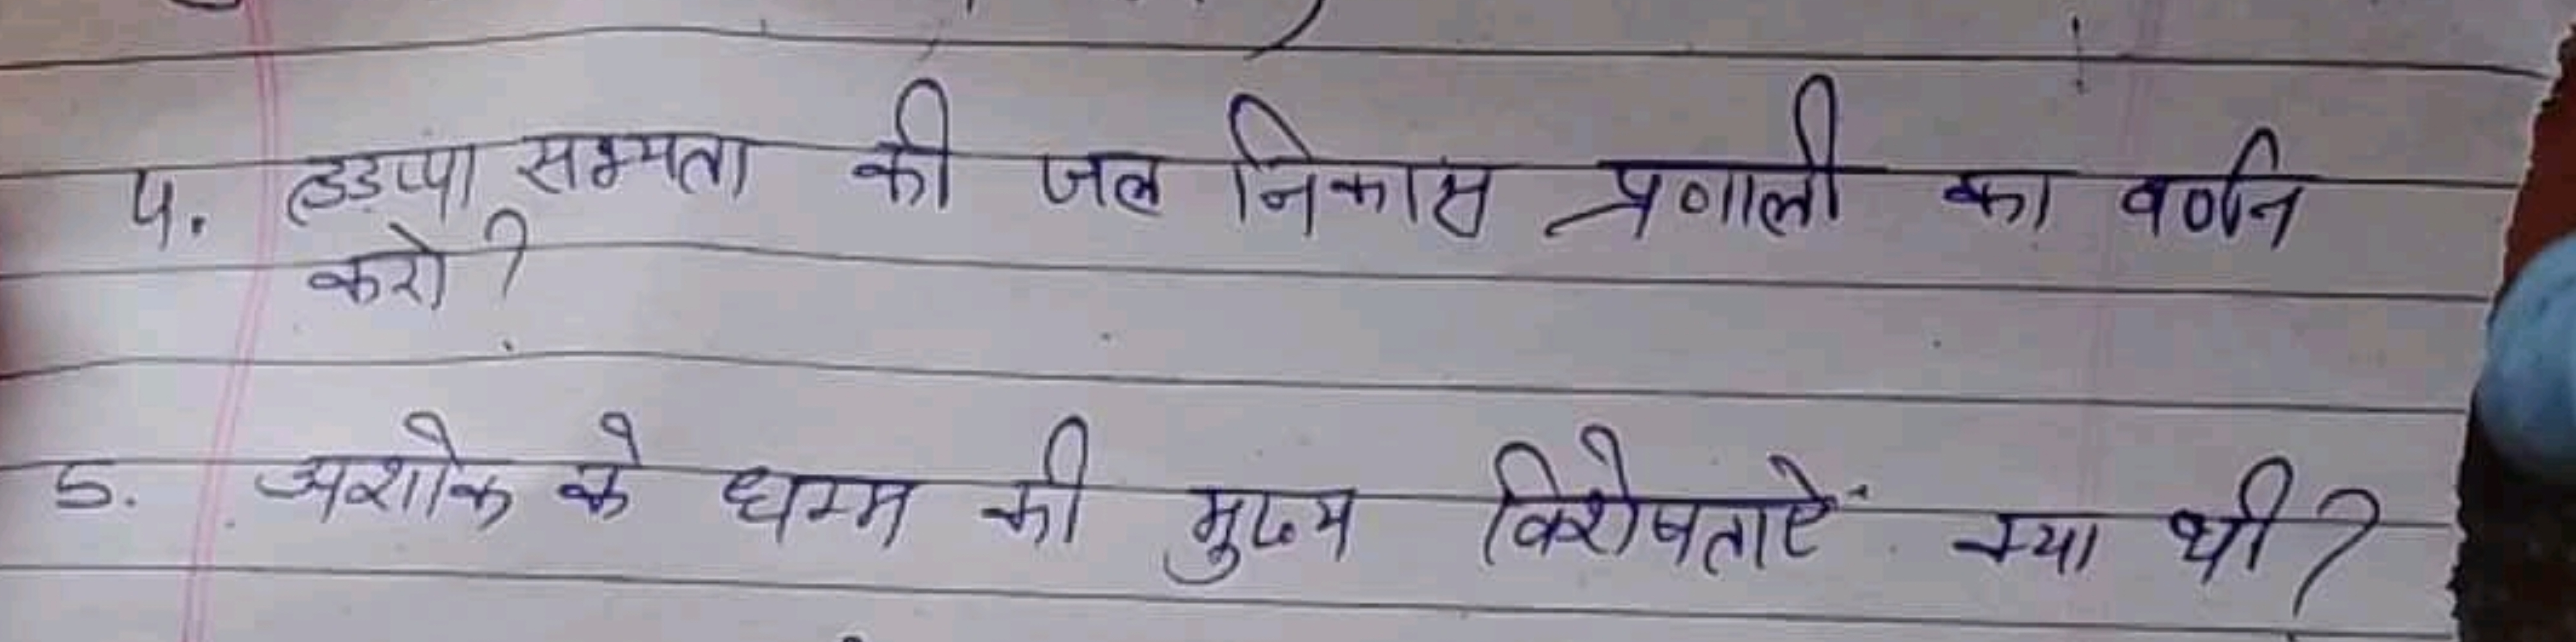 4. हडप्पा सभ्यता की जल निकास प्रणाली का वर्णन
करो?
5. अशोक के धम्म की मुख्य विशेषताऐं क्या थी?